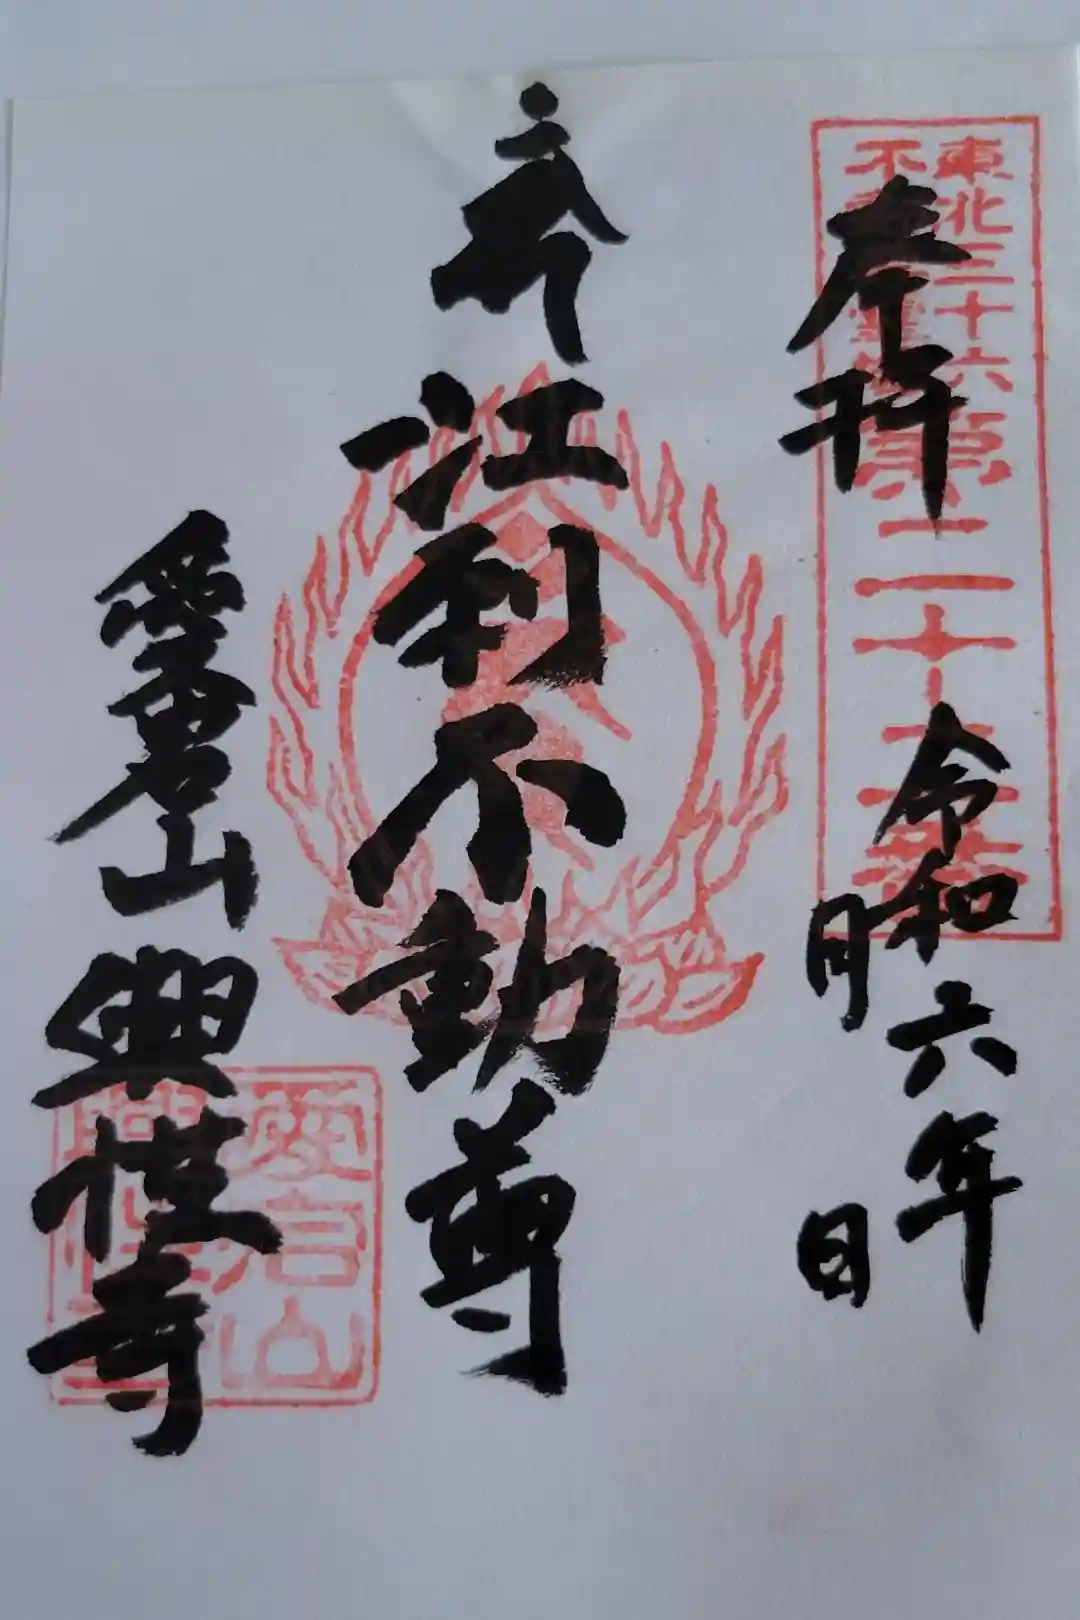 奉拝
東北三十六
不動尊霊場
第二十六番
令和六年
月
日
江刺不動尊
愛宕山
興性寺
愛宕山
興性寺